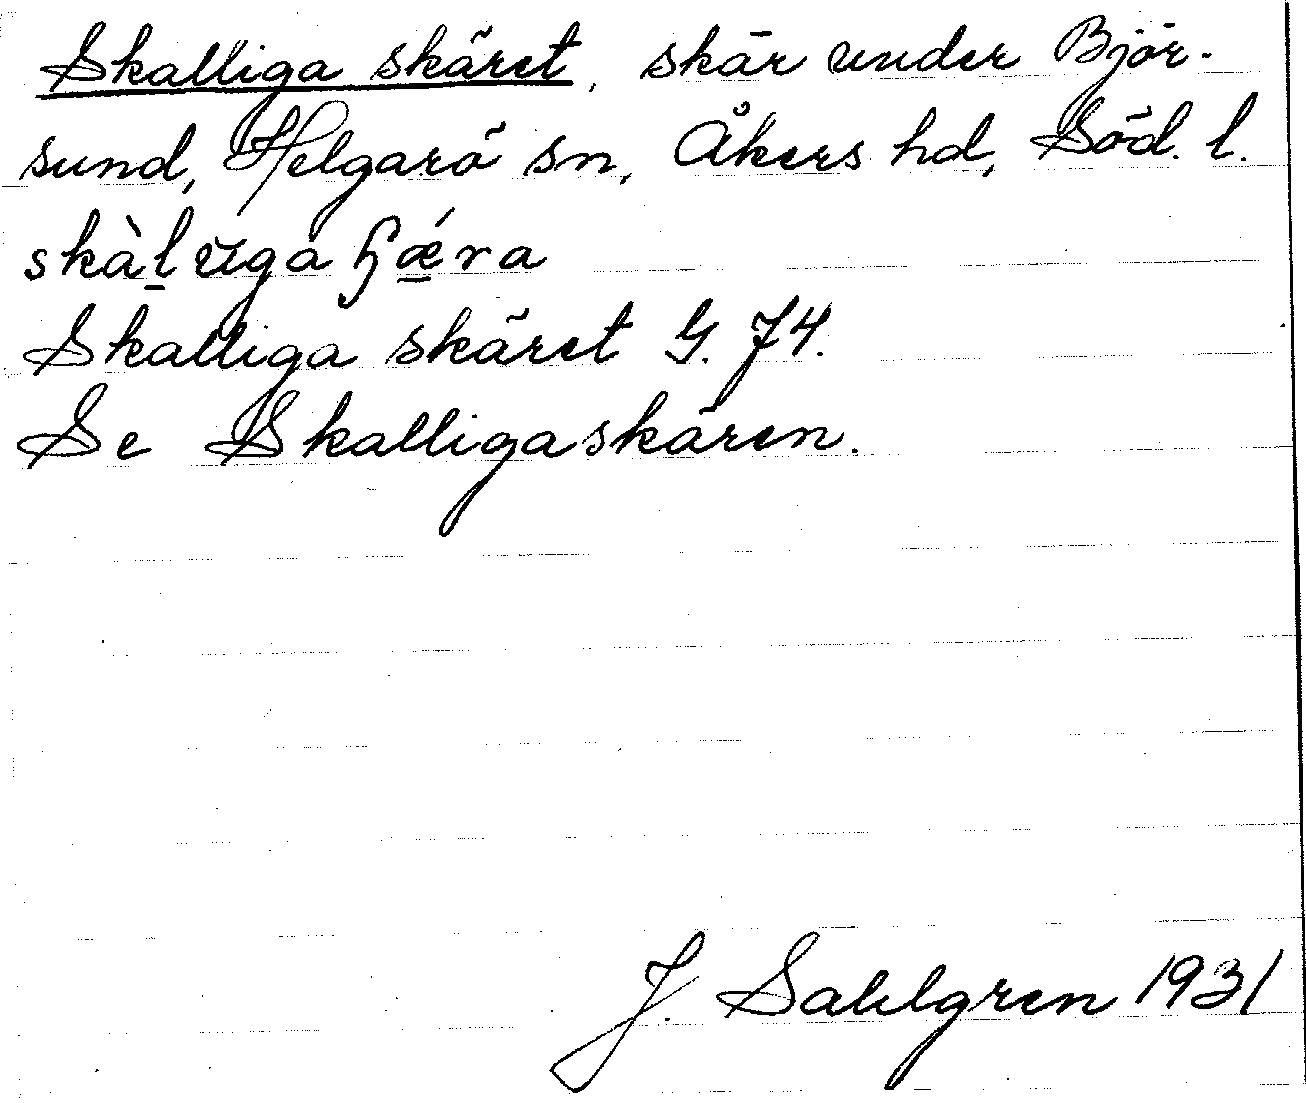 Skalliga skäret, skär under Björ-
sund, Helgarö sn, Åkers hd, Söd. l.
skàl̲ŭga ɧǽ̲ra
Skalliga skäret G. 74.
Se Skalligaskären.
J. Sahlgren 1931